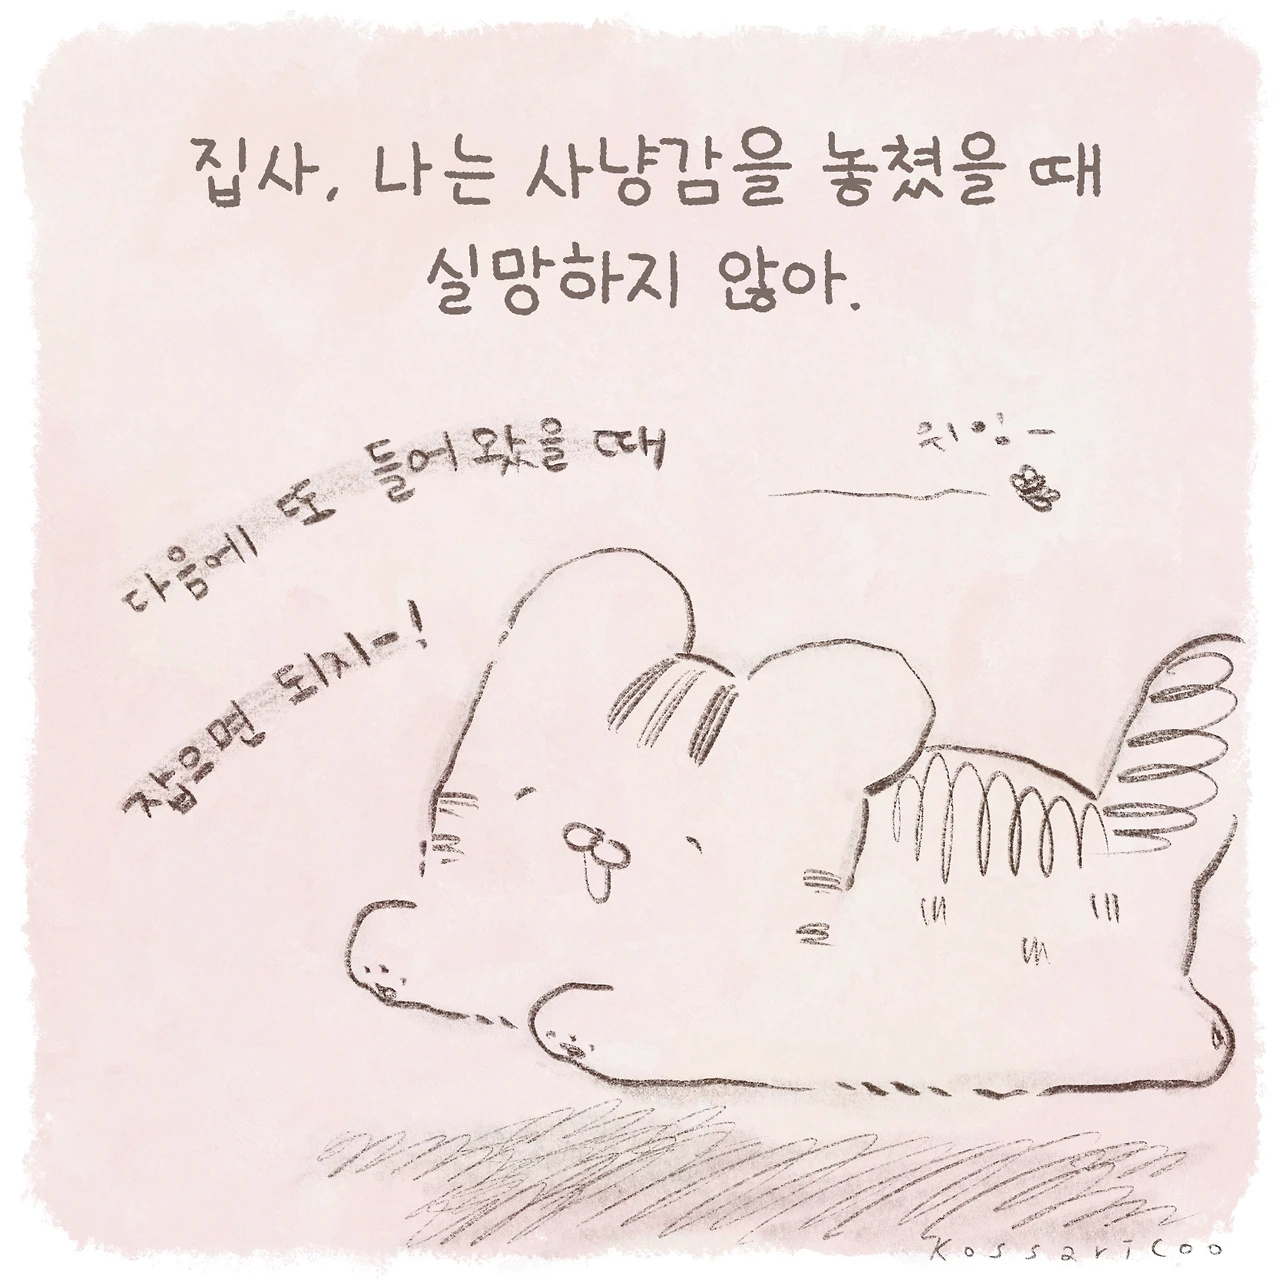 집사, 나는 사냥감을 놓쳤을 때
실망하지 않아.
다음에 또 들어왔을 때
잡으면 되지-!
위잉-
Kossaricoo